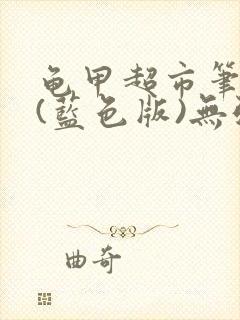 龟甲超市筆
(藍色版)無
曲奇